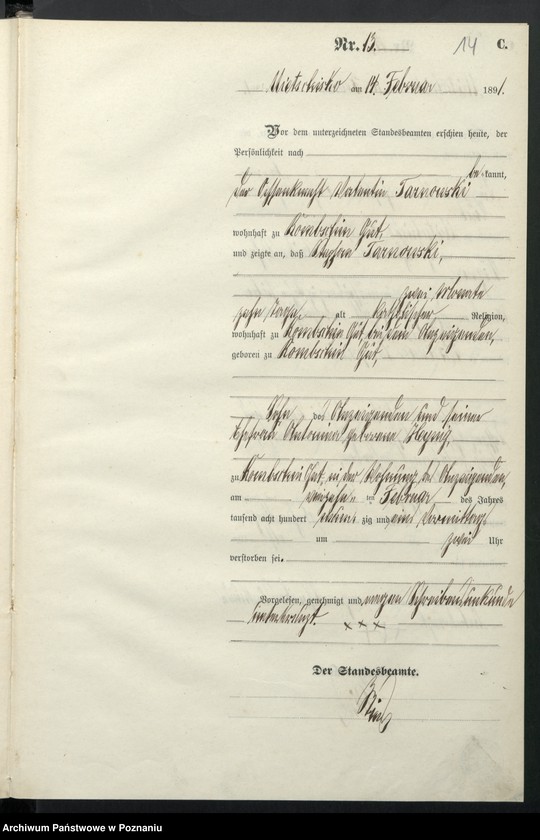 Nr. 13. 14 C.
Mietschisko am 14. Februar 1891.
Vor dem unterzeichneten Standesbeamten erschien heute, der
Persönlichkeit nach
be kannt,
der Ochsenknecht Valentin Tarnowski
wohnhaft zu Gut,
und zeigte an, daß Tarnowski,
zwei Monate
zehn Tage alt katholischer Religion,
wohnhaft zu Gut, bei dem Anzeigenden,
geboren zu Gut,
Sohn des Anzeigenden und seiner
Ehefrau Antonina geborene
zu Gut, in der Wohnung des Anzeigenden,
am ten Februar des Jahres
tausend acht hundert zig und ein Vormittags
um zwei Uhr
verstorben sei.
Vorgelesen, genehmigt und wegen Schreibensunkunde
unterkreuzt. x x x
Der Standesbeamte.
Archiwum Państwowe w Poznaniu